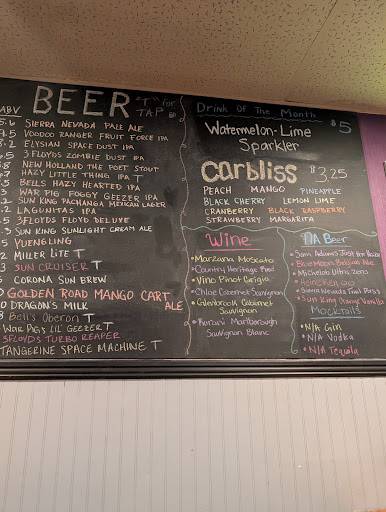 ABV BEER "T" for TAP
5.6 SIERRA NEVADA PALE ALE
9.5 VOODOO RANGER FRUIT FORCE IPA
8.2 ELYSIAN SPACE DUST IPA
6.5 3 FLOYDS ZOMBIE DUST IPA
NEW HOLLAND THE POET STOUT
HAZY LITTLE THING IPA T
BELLS HAZY HEARTED IPA
WAR PIG FOGGY GEEZER IPA
SUN KING PACHANGA MEXICAN LAGER
.2 LAGUNITAS IPA
3FLOYDS FLOYD DELUXE
SUN KING SUNLIGHT CREAM ALE
YUENGLING
2 MILLER LITE T
3 SUN CRUISER T
CORONA SUN BREW
GOLDEN ROAD MANGO CART ALE
0 DRAGON'S MILK
8 Bell's Oberon T
WAR PIGS LIL' GEEZER T
3FLOYDS TURBO REAPER
TANGERINE SPACE MACHINE T
Drink Of The Month
Watermelon-Lime $5
Sparkler
carbliss $3.25
PEACH MANGO PINEAPPLE
BLACK CHERRY LEMON LIME
CRANBERRY BLACK RASPBERRY
STRAWBERRY MARGARITA
Wine
• Marzana Moscato
• Country Heritage Red
• Vino Pinot Grigio
• Chloe Cabernet Sauvignon
• Glenbrook Cabernet
Sauvignon
• Marlborough
Sauvignon Blanc
N/A Beer
• Sam Adams Just the Haze
• Blue Moon Belgian
• Michelob Ultra Zero
• Heineken 0.0
• Sierra Nevada Trail Pass
• Sun King Orange Vanilla
Mocktails
• N/A Gin
• N/A Vodka
• N/A Tequila